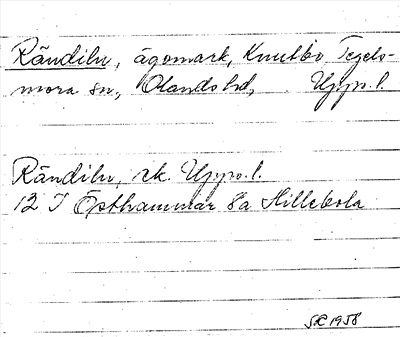 Rändiln, ägomark, Knutbo Tegels-
mora sn., Olands hd, Upps. l.
Rändiln, ek. Upps. l.
12 I Östhammar 8a Hillebola
SE 1958